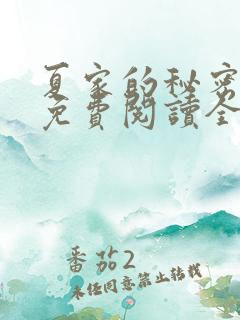 夏家的秘密
免費閱讀全
番茄2
未经同意禁止转载